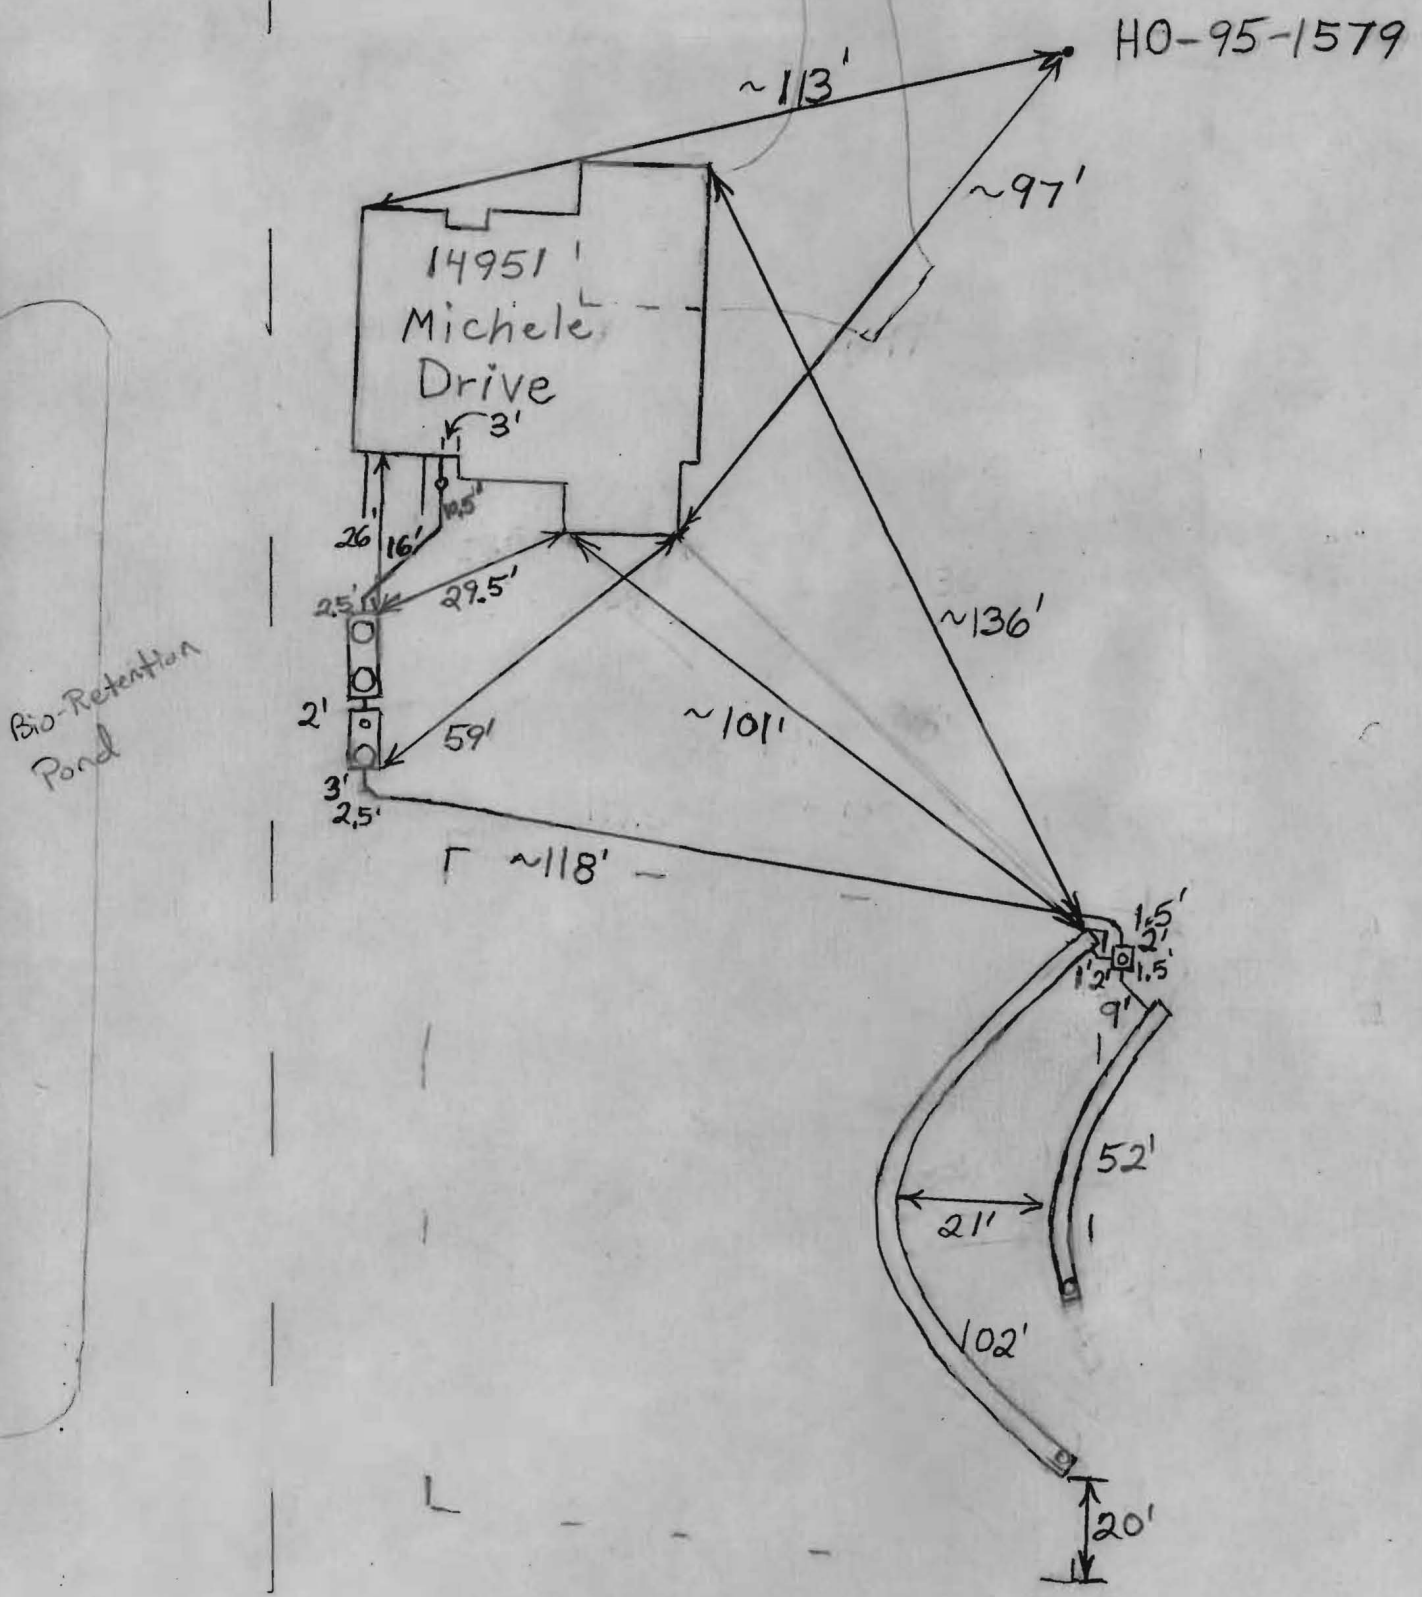 HO-95-1579
~113'
~97'
14951
Michele
Drive
3'
10.5'
26'
16'
29.5'
2.5'
~136'
Bio-Retention
Pond
2'
59'
~101'
3'
2.5'
~118'
1.5'
2'
1'
2'
1.5'
9'
52'
21'
102'
20'